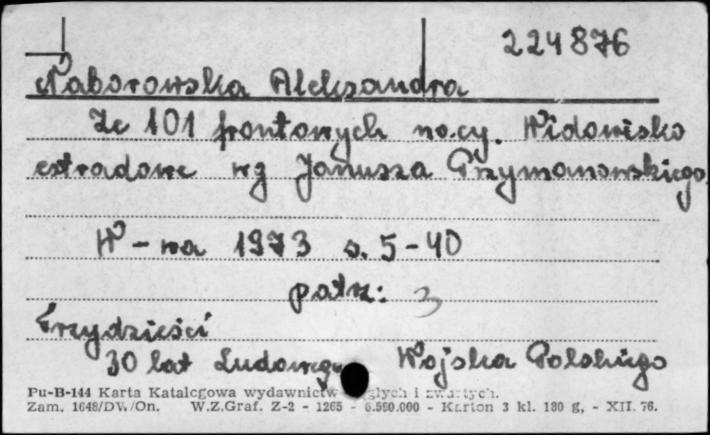 224876
Naborowska Aleksandra
Ze 101 frontowych nocy. Widowisko
estradowe wg Janusza Przymanowskiego.
W-wa 1973 s. 5-40
patrz: 3
Trzydzieści
30 lat Ludowego Wojska Polskiego
Pu-B-144 Karta Katalogowa wydawnictw i zwartych.
Zam. 1648/DW/On. W.Z.Graf. Z-2 - 1265 - 6.590.000 - Karton 3 kl. 180 g, - XII. 76.